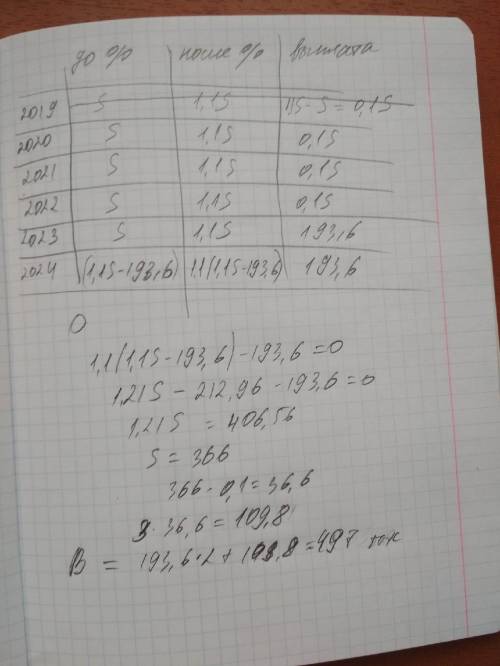 до % после % выплата
2019 S 1,1S 1,1S - S = 0,1S
2020 S 1,1S 0,1S
2021 S 1,1S 0,1S
2022 S 1,1S 0,1S
2023 S 1,1S 193,6
2024 (1,1S-193,6) 1,1(1,1S-193,6) 193,6
0
1,1(1,1S-193,6)-193,6=0
1,21S - 212,96 - 193,6=0
1,21S = 406,56
S = 366
366 · 0,1 = 36,6
3 · 36,6 = 109,8
B = 193,6·2 + 109,8 = 497